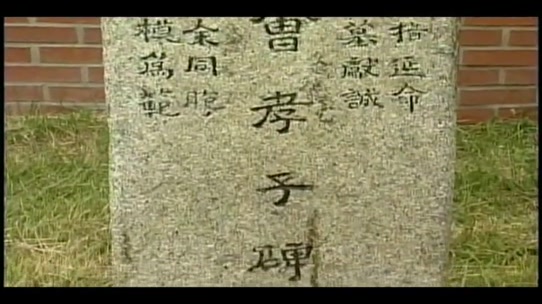 指延命
墓献誠
孝子碑
同胞
模爲範